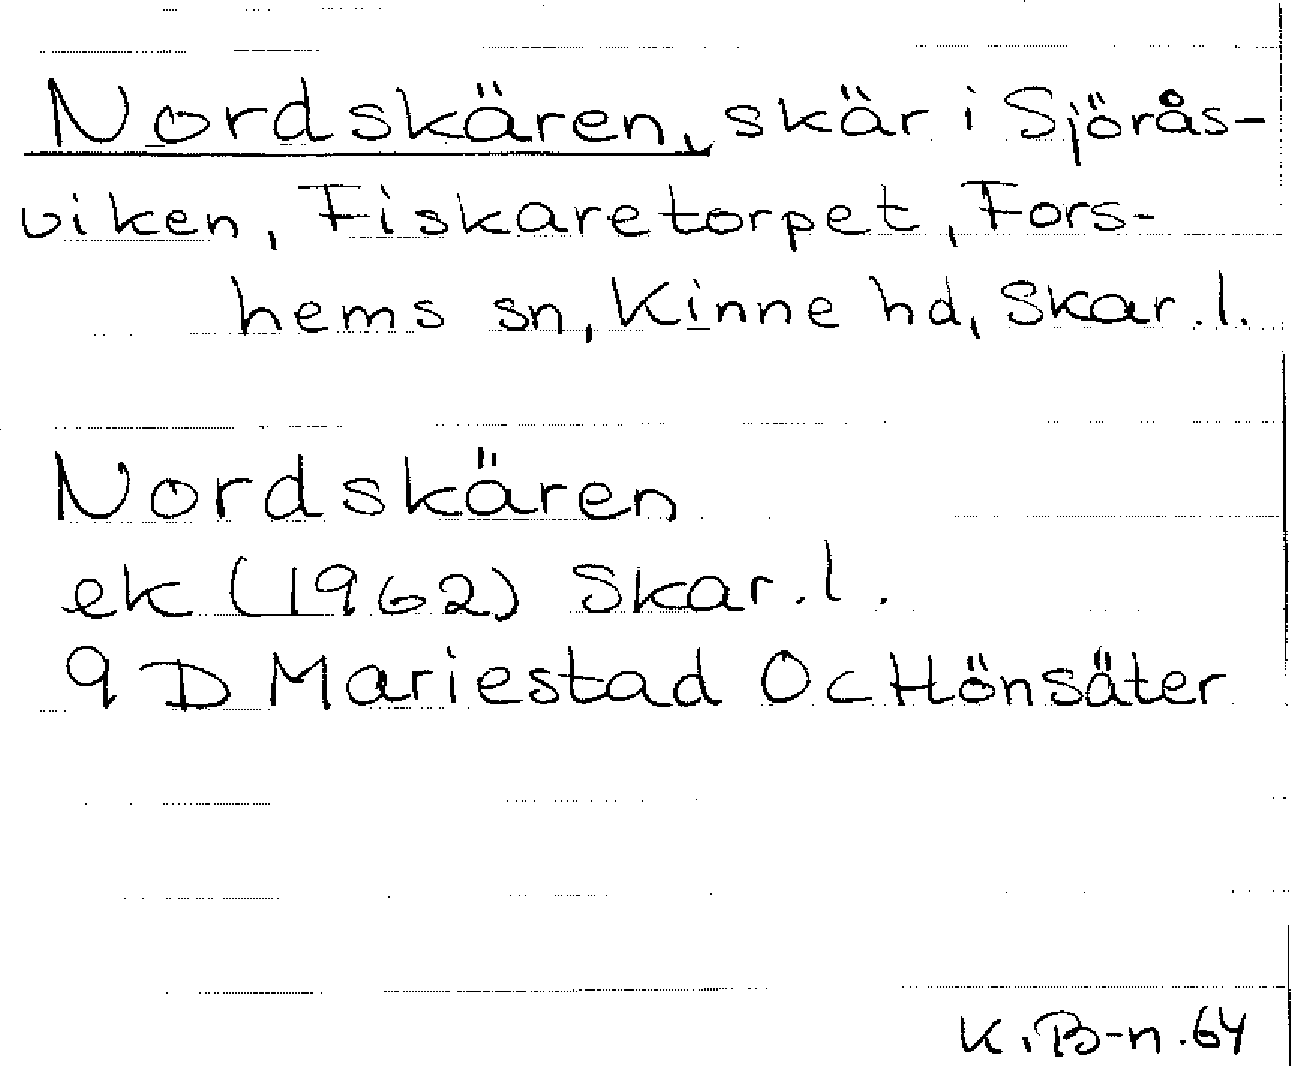 Nordskären, skär i Sjörås-
viken, Fiskaretorpet, Fors-
hems sn, Kinne hd, Skar.l.
Nordskären
ek (1962) Skar.l.
9 D Mariestad Oc Hönsäter
K.B-n.64